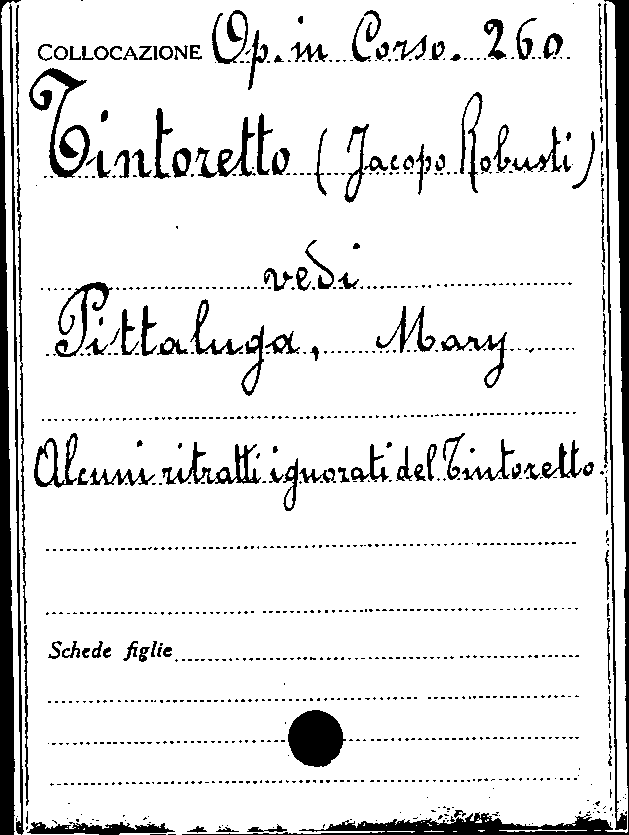 COLLOCAZIONE Op. in Corso. 260
Tintoretto (Jacopo Robusti)
vedi
Pittaluga, Mary.
Alcuni ritratti ignorati del Tintoretto.
Schede figlie